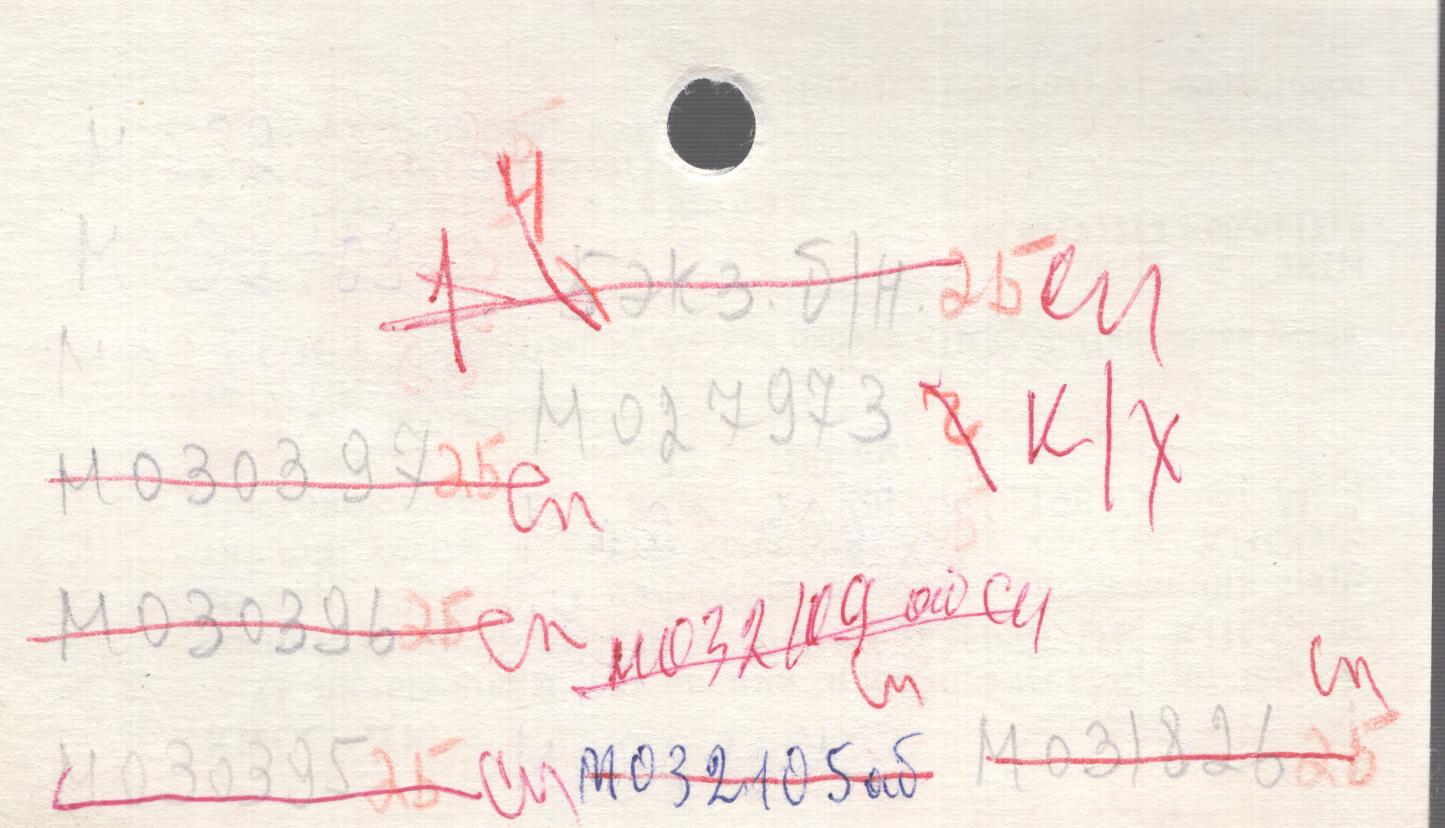 4
1 5 экз. б/н. 2б сп
М027973 2 к/х
М030397 2б сп
М030396 2б сп М032109 аб сп
сп
сп
М030395 2б сп М032105 аб М031826 2б